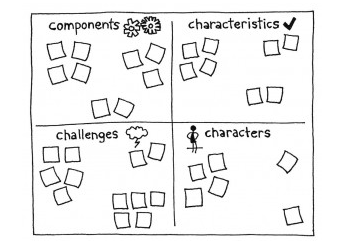 components
characteristics
challenges
characters